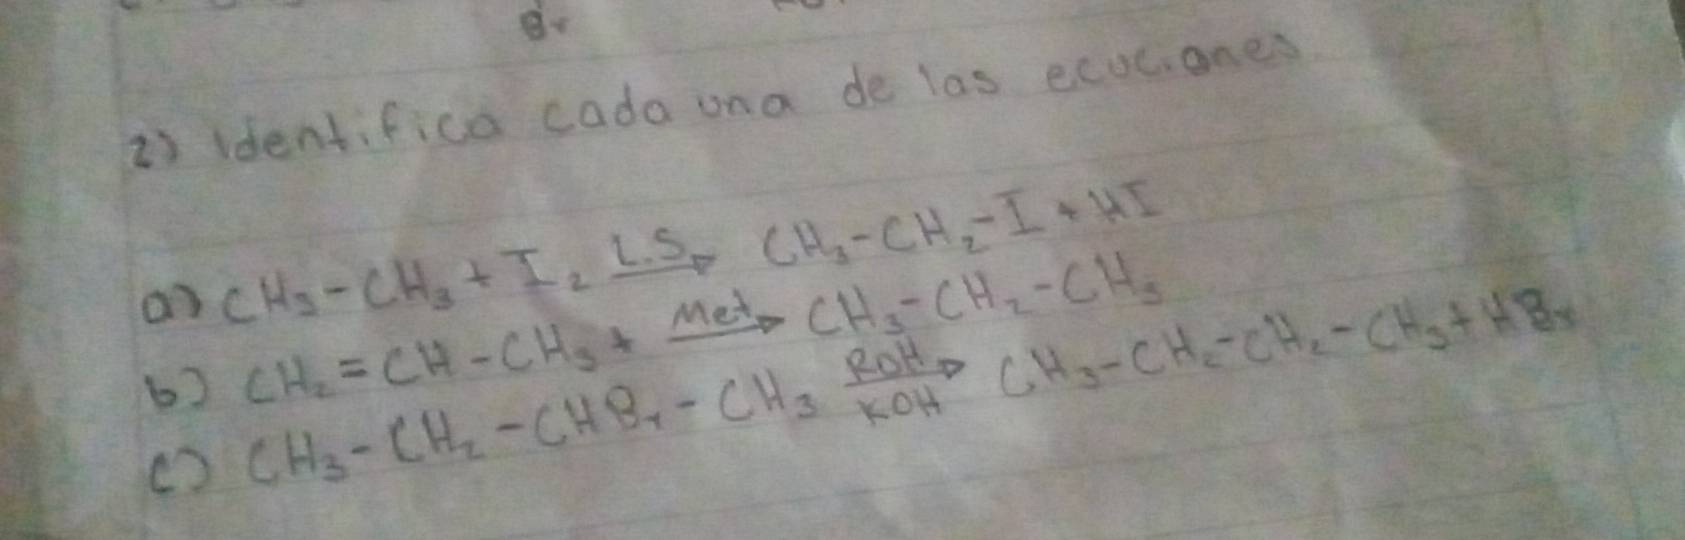 Br
2) Identifica cada una de las ecuciones
a) CH₃-CH₃ + I₂ L.S→ CH₃-CH₂-I + HI
b) CH₂=CH-CH₃ + Met→ CH₃-CH₂-CH₃
c) CH₃-CH₂-CHBr-CH₃ ROH→ KOH CH₃-CH₂-CH₂-CH₃ + HBr